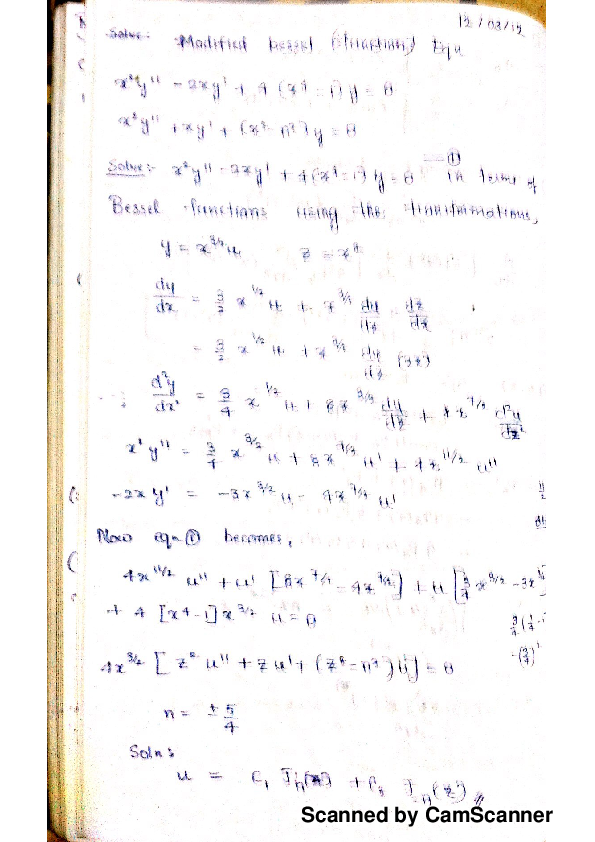 12/03/15
Solve:- Modified bessel (function) Equ
x²y'' - 2xy' + 4(x⁴-1)y = 0
x²y'' + xy' + (x²-n²)y = 0
Solve:- x²y'' - 2xy' + 4(x⁴-1)y = 0 —① in terms of
Bessel functions using the transformations,
y = x^{3/2}u z = x²
dy/dx = 3/2 x^{1/2} u + x^{3/2} du/dz dz/dx
= 3/2 x^{1/2} u + x^{3/2} du/dz (2x)
d²y/dx² = 3/4 x^{1/2} u + 8x^{3/2} du/dz + 4x^{7/2} d²u/dz²
x²y'' = 3/4 x^{3/2} u + 8x^{7/2} u' + 4x^{11/2} u''
-2xy' = -3x^{3/2} u - 4x^{7/2} u'
Now eqn ① becomes,
4x^{11/2} u'' + u' [8x^{7/2} - 4x^{7/2}] + u [3/4 x^{3/2} - 3x
+ 4 [x⁴-1] x^{3/2} u = 0
4x^{3/2} [z² u'' + z u' + (z² - n²) u] = 0
n = ± 5/4
Soln:
u = C₁ Jₙ(z) + C₂ J₋ₙ(z)
Scanned by CamScanner